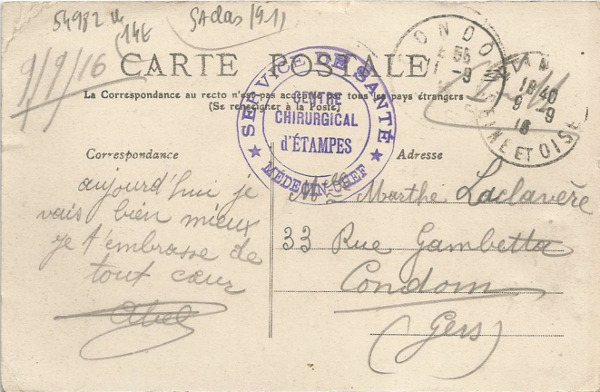 54982
14E
9/9/16
CARTE POSTALE
La Correspondance au recto n'est pas acceptée par tous les pays étrangers
(Se renseigner à la Poste)
SERVICE DE SANTÉ
CENTRE
CHIRURGICAL
d'ÉTAMPES
★ MÉDECIN-CHEF ★
18 40
9-9
16
SEINE ET OISE
Correspondance
Adresse
aujourd'hui je
vais bien mieux
je t'embrasse de
tout cœur
Abel
Marthe Laclavère
33 Rue Gambetta
Condom
(Gers)